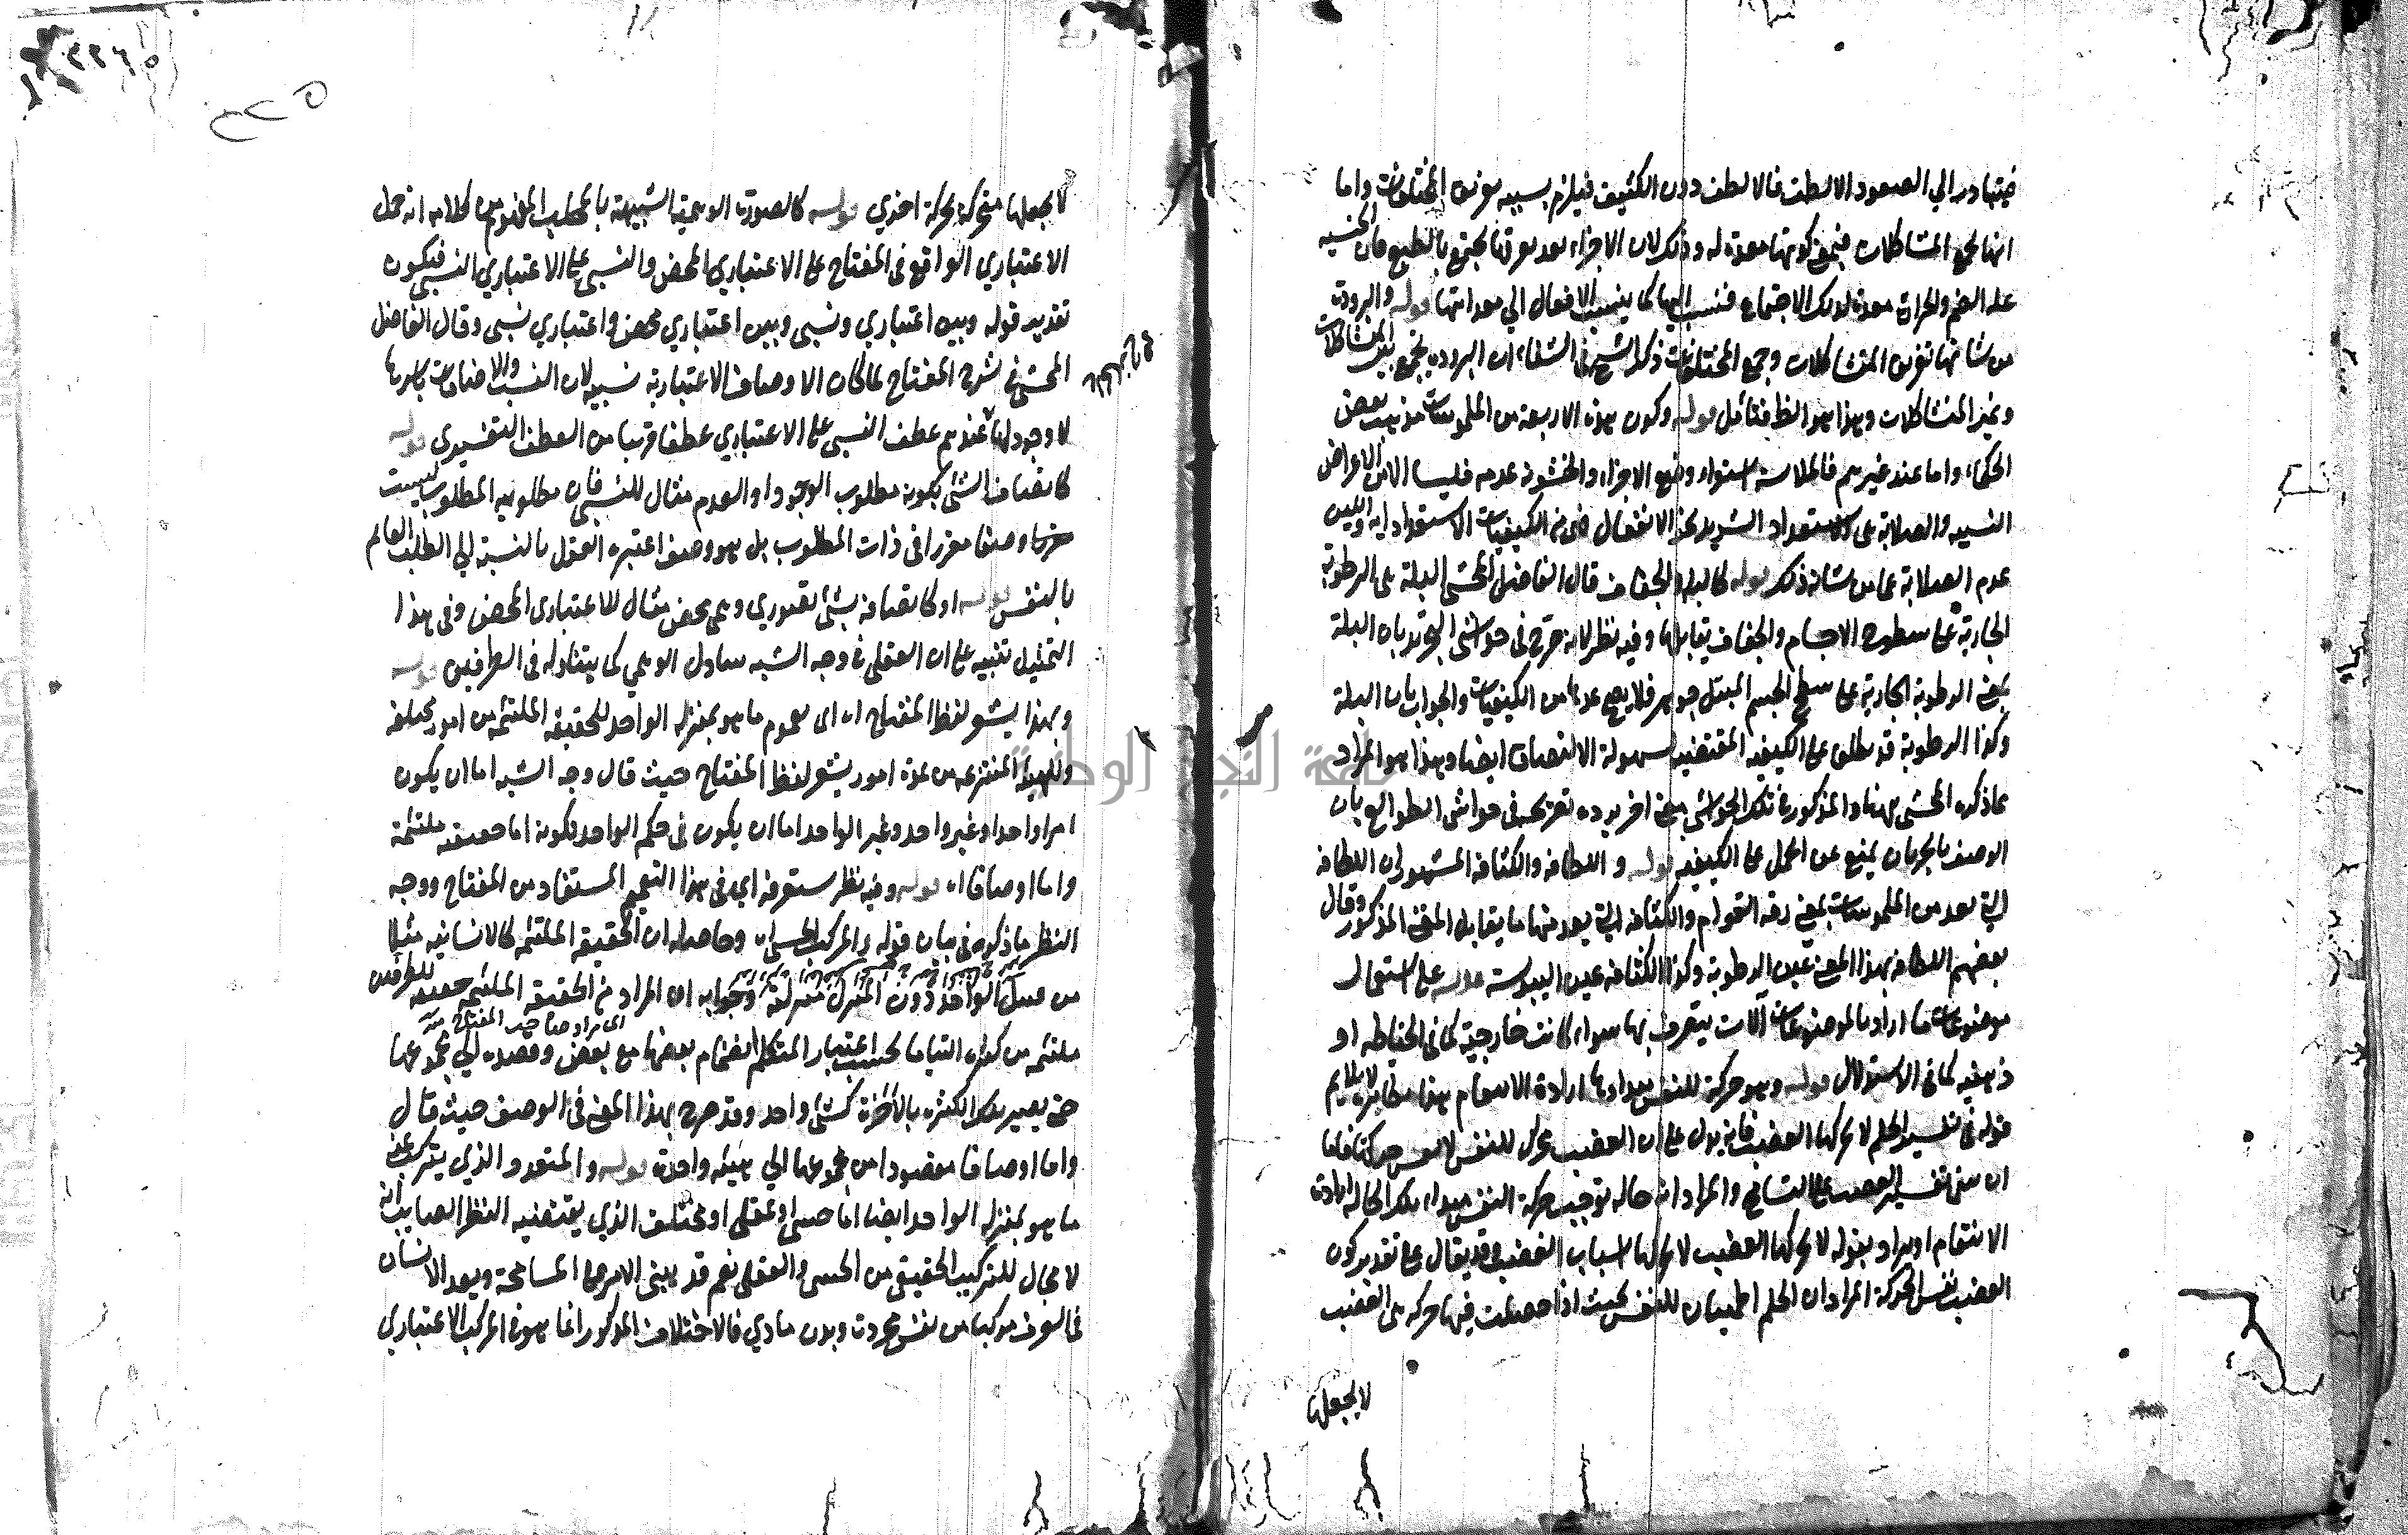 فيتبادر الي الصعود الالطف فالالطف دون الكثيف فيلزم بسببه تفريق المختلفات واما
انها تجمع المتشاكلات فبمعنى كونها معدة له وذلك لان الاجزاء بعد تفرقها تجتمع بالطبع فان الجنسية
علة الضم والحرارة معدة لذلك الاجتماع فنسب اليها كما ينسب الافعال الي معداتها قوله والبرودة
من شانها تفريق المتشاكلات وجمع المختلفات ذكر الشيخ في الشفاء ان البرودة تجمع بين المتشاكلات
وغير المتشاكلات وهذا هو الظ فتأمل قوله وكون هذه الاربعة من الملموسات مذهب بعض
الحكماء واما عند غيرهم فالملاسة استواء وضع الاجزاء والخشونة عدمه فليسا الا من الاعراض
النسبية والصلابة هي الاستعداد الشديد نحو الانفعال فهي من الكيفيات الاستعدادية واللين
عدم الصلابة عما من شانه ذلك قوله كالبلة والجفاف قال الفاضل المحشى البلة هي الرطوبة
الجارية على سطوح الاجسام والجفاف يقابلها وفيه نظر لانه صرح في حواشي التجريد بان البلة
بمعنى الرطوبة الجارية على سطح الجسم المبتل جوهر فلا يصح عدها من الكيفيات والجواب بان البلة
وكذا الرطوبة قد يطلق على الكيفية المقتضية لسهولة الالتصاق ايضا وهذا هو المراد
بما ذكره المحشى ههنا والمذكور في تلك الحواشي معنى اخر يرده تصريحه في حواشى الطوالع بان
الوصف بالجريان يمنع عن الحمل على الكيفية قوله و اللطافة والكثافة المشهور ان اللطافة
التي يعد من الملموسات بمعنى رقة القوام والكثافة التي يعد منها ما يقابل المعنى المذكور وقال
بعضهم اللطافة بهذا المعنى عين الرطوبة وكذا الكثافة عين اليبوسة قوله على استعمال
موضوعات ما اراد بالموضوعات آلات يتصرف بها سواء كانت خارجية كما في الخياطة او
ذهنية كما في الاستدلال قوله وهو حركة للنفس مبدأها ارادة الانتقام هذا مظاهره لا يلايم
قوله في تفسير الحلم لا يحركها الغضب فانه يدل على ان الغضب محرك للنفس لا نفس حركتها فاما
ان يبنى تفسير الغضب على التسامح والمراد انه حالة توجب حركة النفس مبداء تلك الحالة ارادة
الانتقام او يراد بقوله لا يحركها الغضب لا يحركها اسباب الغضب وقد يقال على تقدير كون
الغضب نفس الحركة المراد ان الحلم اطمينان للنفس بحيث اذا حصلت فيها حركة هى الغضب
لا يجعلها
لا يجعلها متحركة بحركة اخري قوله كالصورة الوهمية الشبيهة بالمخلب المفهوم من كلامه انه حمل
الاعتباري الواقع في المفتاح على الاعتباري المحض والنسبي على الاعتباري النسبي فيكون
تقدير قوله وبين اعتباري ونسبى وبين اعتباري محض واعتباري نسبى وقال الفاضل
المحشى في شرح المفتاح لما كان الاوصاف الاعتبارية نسبية لان النسب والاضافات باسرها
لا وجود لها عندهم عطف النسبى على الاعتباري عطفا قريبا من العطف التفسيرى قوله
كاتصاف الشئ بكونه مطلوب الوجود او العدم مثال للنسبى فان مطلوبية المطلوب ليست
وصفا مقررا فى ذات المطلوب بل هو وصف اعتبره العقل بالنسبة الي الطلب القائم
بالنفس قوله او كاتصافه بشئ تصوري وهمى محض مثال للاعتبارى المحض وفى هذا
التمثيل تنبيه على ان العقلى في وجه الشبه يتناول الوهمي كما يتناوله فى الطرفين قوله
وبهذا يشعر لفظ المفتاح اه اى بعموم ما هو بمنزلة الواحد للحقيقة الملتئمة من امور مختلفة
وللهيئة المنتزعة من عدة امور يشعر لفظ المفتاح حيث قال وجه الشبه اما ان يكون
امرا واحدا وغير واحد وغير الواحد اما ان يكون فى حكم الواحد لكونه اما حقيقة ملتئمة
واما اوصافا اه قوله وفيه نظر ستعرفه اي في هذا التعميم المستفاد من المفتاح ووجه
النظر ما ذكره في بيان قوله والمركب الحسى اه وحاصله ان الحقيقة الملتئمة كالانسانية مثلا
من قبيل الواحد دون المنزل منزلته وجوابه ان المراد من الحقيقة الملتئمة حقيقة للطرفين
اى مراد صاحب المفتاح منه
ملتئمة من كثرة التياما بحسب اعتبار المتكلم انضمام بعضها مع بعض وقصده الي مجموعها
حتى يصير تلك الكثرة بالآخرة كشئ واحد وقد صرح بهذا المعنى في الوصف حيث قال
واما اوصافا مقصودا من مجموعها الي هيئة واحدة قوله والمتعدد الذي يتركب عنه
ما هو بمنزلة الواحد ايضا اما حسى او عقلى او مختلف الذي يقتضيه النظر الصايب انه
لا مجال للتركيب الحقيقي من الحسى والعقلى نعم قد يبنى الامر على المسامحة ويعد الانسان
في العرف مركبا من نفس مجردة وبدن مادي فالاختلاف المذكور انما هو في المركب الاعتباري